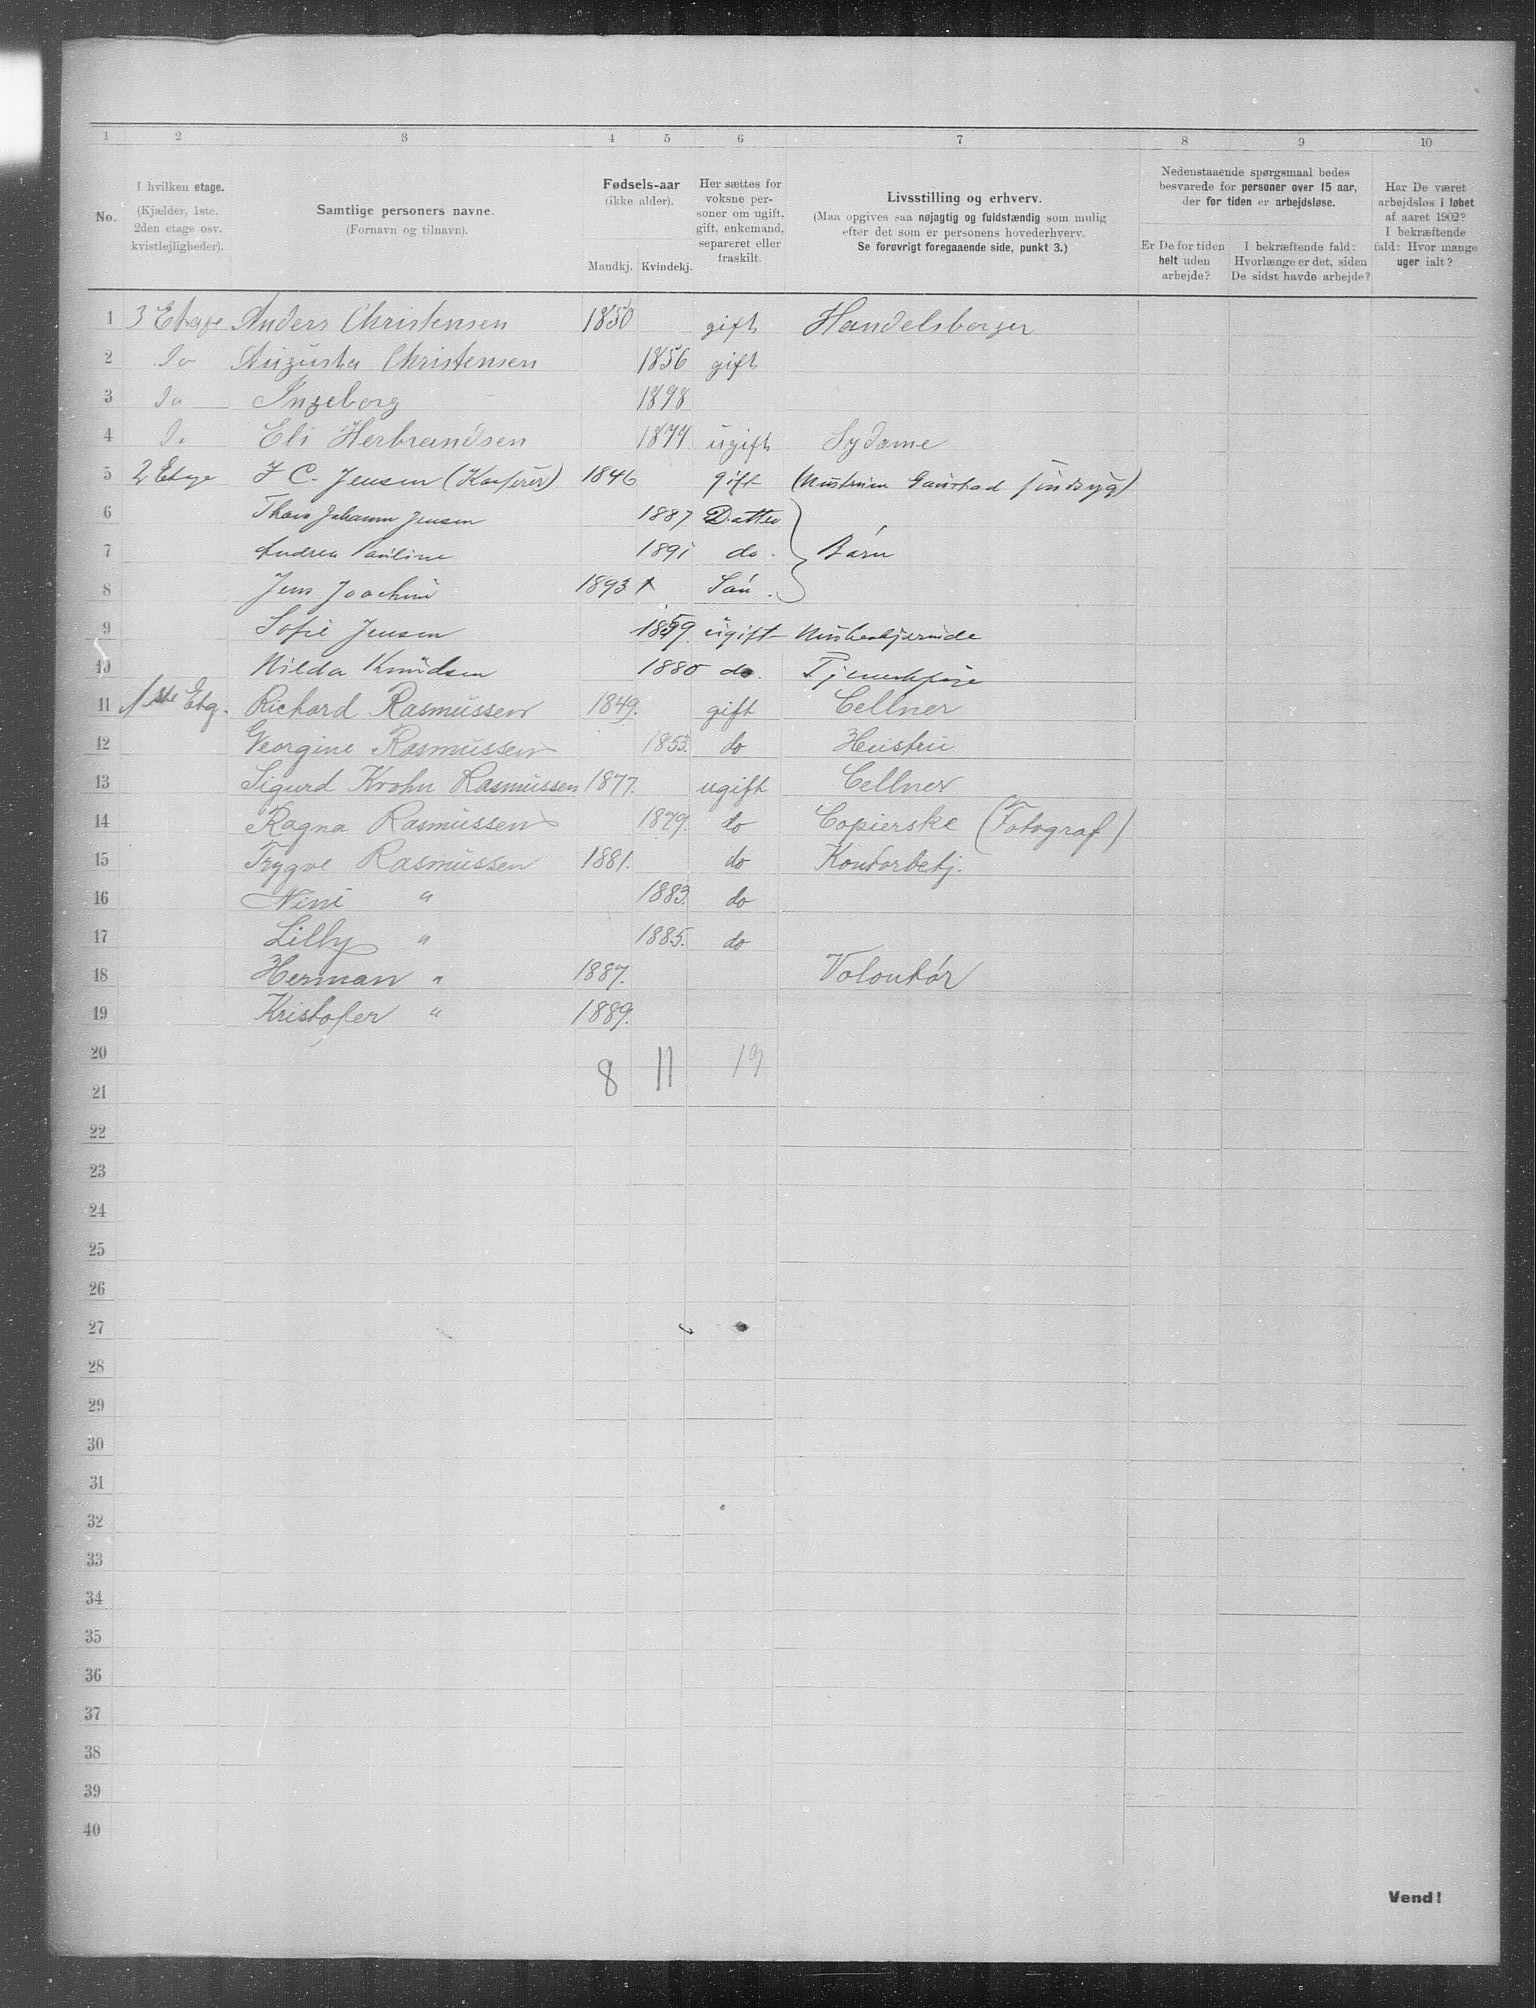 1 2 3 4 5 6 7 8 9 10
No.
I hvilken etage.
(Kjælder, 1ste.
2den etage osv.
kvistlejligheder).
Samtlige personers navne.
(Fornavn og tilnavn).
Fødsels-aar
(ikke alder).
Mandkj. Kvindekj.
Her sættes for
voksne per-
soner om ugift,
gift, enkemand,
separeret eller
fraskilt.
Livsstilling og erhverv.
(Maa opgives saa nøjagtig og fuldstændig som mulig
efter det som er personens hovederhverv.
Se forøvrigt foregaaende side, punkt 3.)
Nedenstaaende spørgsmaal bedes
besvarede for personer over 15 aar,
der for tiden er arbejdsløse.
Er De for tiden
helt uden
arbejde?
I bekræftende fald:
Hvorlænge er det, siden
De sidst havde arbejde?
Har De været
arbejdsløs i løbet
af aaret 1902?
I bekræftende
fald: Hvor mange
uger ialt?
1 3 Etage Anders Christensen 1850 gift Handelsborger
2 Do Augusta Christensen 1856 gift
3 Do Ingeborg 1898
4 Do Eli Herbrandsen 1874 ugift Sydame
5 2 Etage J C. Jensen (Kasserer) 1846 gift (Hustruen Gaustad sindsyg)
6 Johanne Jensen 1887 Datter
7 Andrea Pauline 1891 do. Børn
8 Jens Joachim 1893 Søn
9 Sofie Jensen 1859 ugift Husbestyrerinde
10 Hilda Knudsen 1880 do. Tjenestpige
11 1ste Etg. Richard Rasmussen 1849. gift Cellner
12 Georgine Rasmussen 1853. do Hustru
13 Sigurd Krohn Rasmussen 1877. ugift Cellner
14 Ragna Rasmussen 1879. do Copierske (Fotograf)
15 Trygve Rasmussen 1881. do Kontorbetj.
16 Nini " 1883. do
17 Lilly " 1885. do
18 Herman " 1887. Volontør
19 Kristofer " 1889.
20
8 11 19
21
22
23
24
25
26
27
28
29
30
31
32
33
34
35
36
37
38
39
40
Vend!